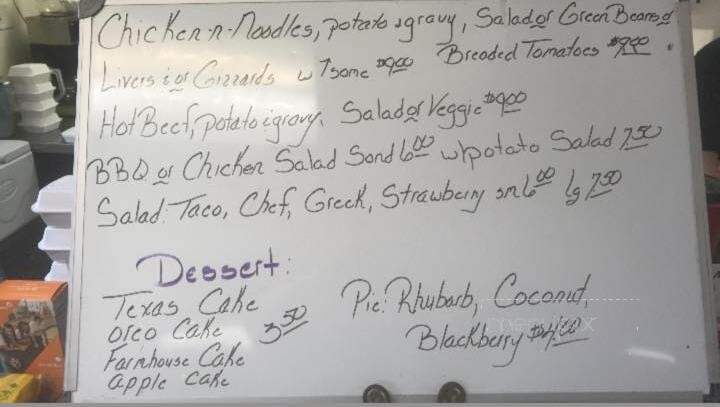 Chicken-n-Noodles, potato & gravy, Salad or Green Beans or
Breaded Tomatoes $9.00
Livers & or Gizzards w/ same $9.00
Hot Beef, potato & gravy, Salad or Veggie $9.00
BBQ or Chicken Salad Sand 6.00 w/potato Salad 7.50
Salad: Taco, Chef, Greek, Strawberry sm 6.00 lg 7.50
Dessert:
Texas Cake
Oreo Cake 3.50
Farmhouse Cake
apple cake
Pie: Rhubarb, Coconut,
Blackberry $4.00